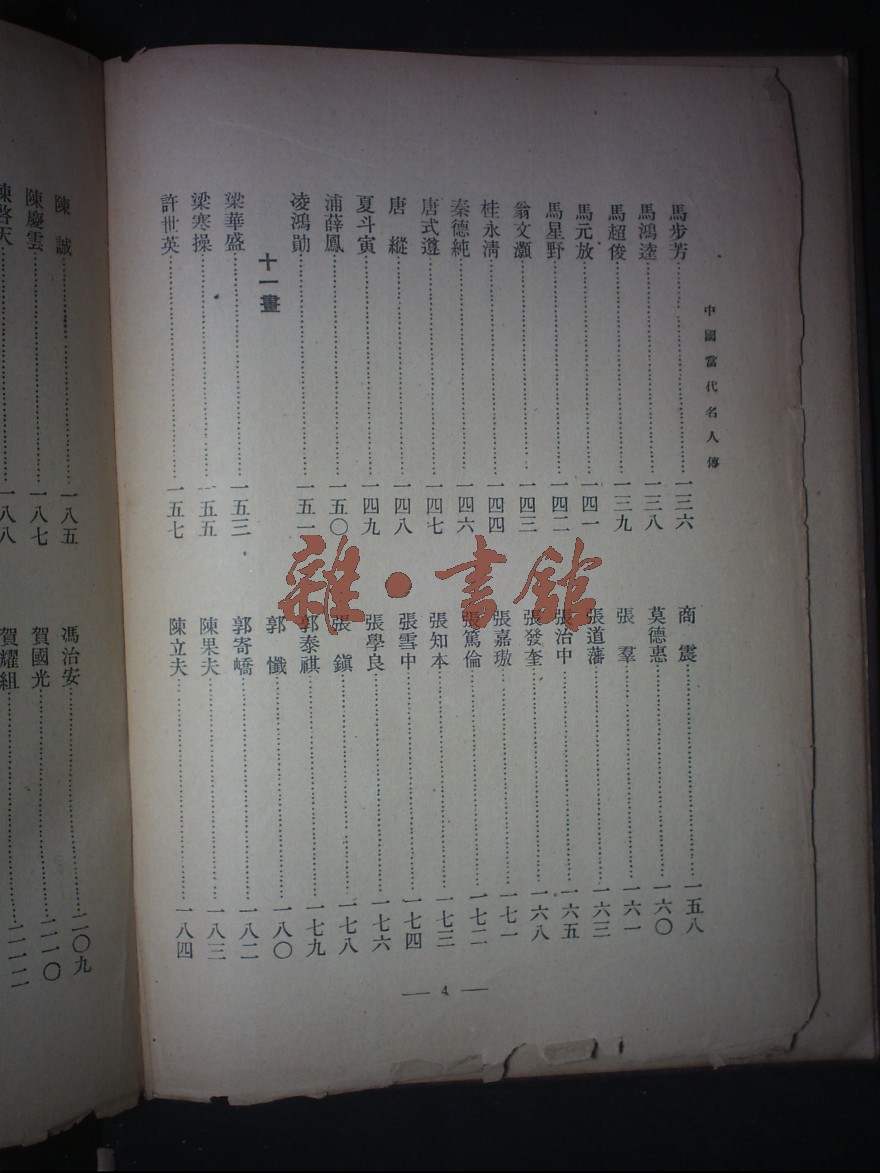 中國當代名人傳
馬步芳 一三六
馬鴻逵 一三八
馬超俊 一三九
馬元放 一四一
馬星野 一四二
翁文灝 一四三
桂永淸 一四四
秦德純 一四六
唐式遵 一四七
唐縱 一四八
夏斗寅 一四九
浦薛鳳 一五〇
凌鴻勛 一五一
十一畫
梁華盛 一五三
梁寒操 一五五
許世英 一五七
商震 一五八
莫德惠 一六〇
張羣 一六一
張道藩 一六三
張治中 一六五
張發奎 一六八
張嘉璈 一七一
張篤倫 一七二
張知本 一七三
張雪中 一七四
張學良 一七六
張鎭 一七八
郭泰祺 一七九
郭懺 一八〇
郭寄嶠 一八二
陳果夫 一八三
陳立夫 一八四
— 4 —
陳誠 一八五
陳慶雲 一八七
陳啓天 一八八
馮治安 二〇九
賀國光 二一〇
賀耀組 二一二
雜·書館